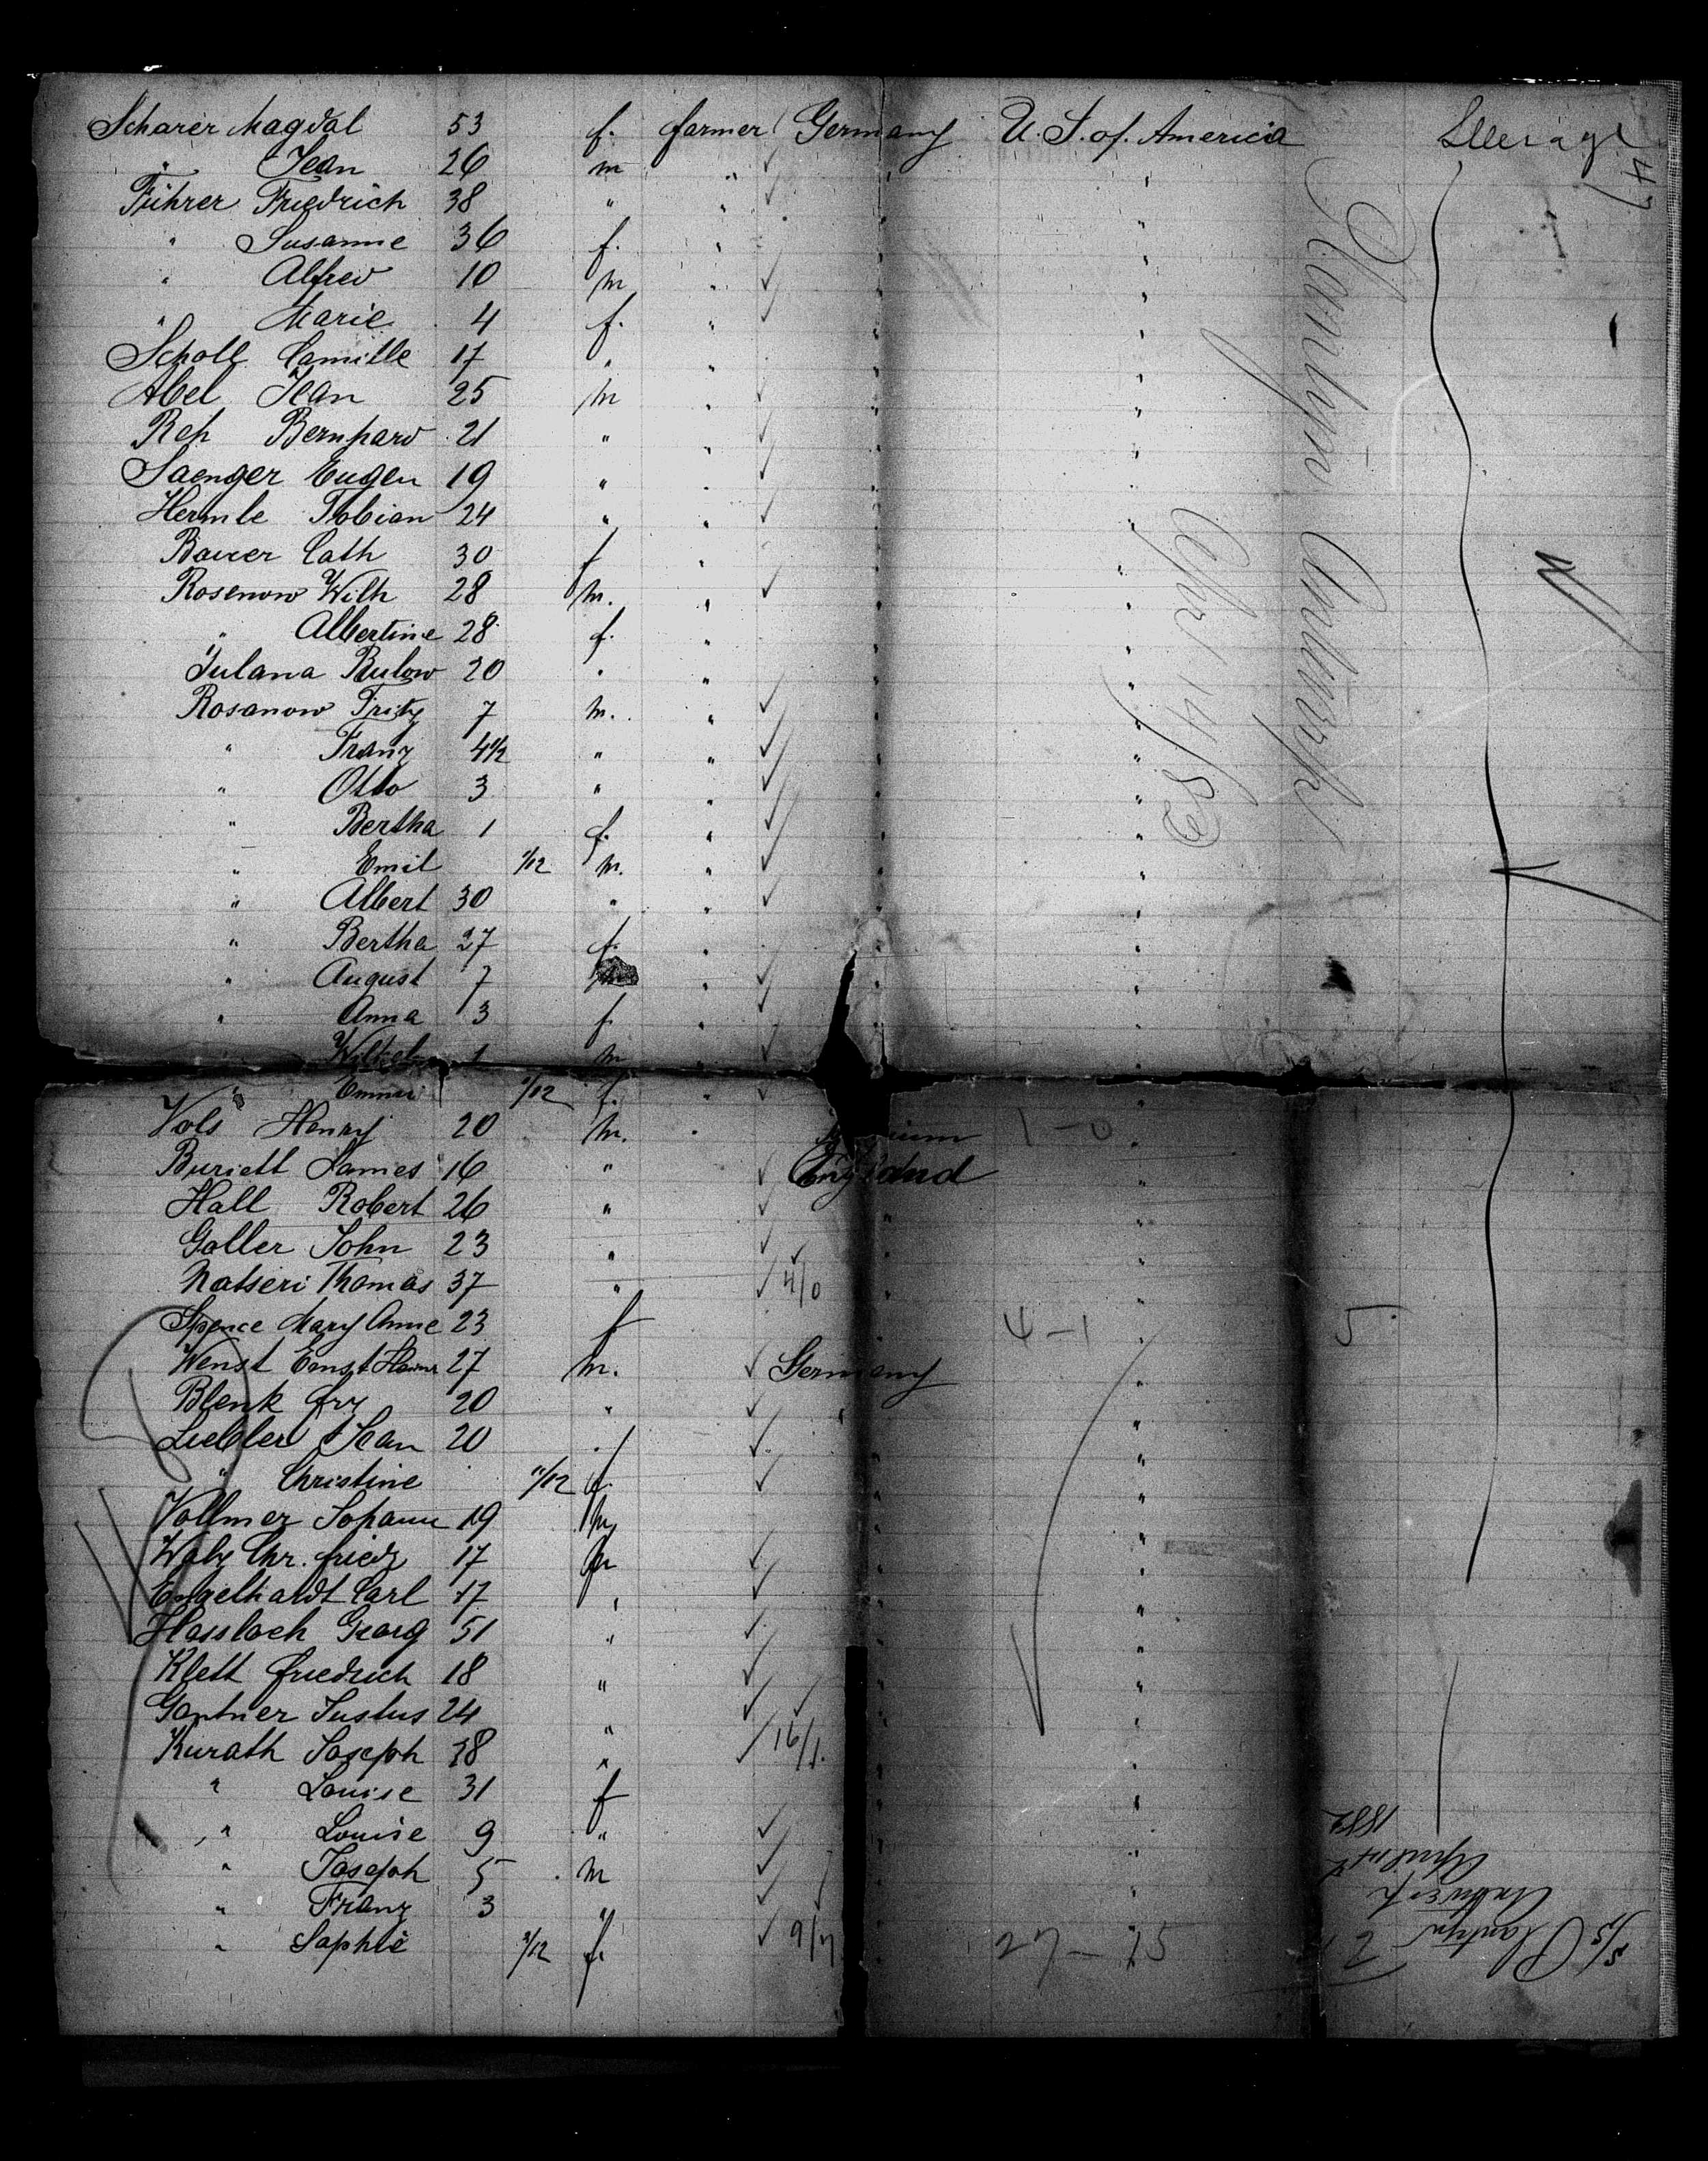 Scharer Magdal 53 f. farmer Germany U.S. of America Steerage
" Jean 26 m " " "
Führer Friedrich 38 " " " "
" Susanne 36 f. " " "
" Alfred 10 m " " "
" Marie 4 f. " " "
Scholl Camille 17 " " " "
Abel Jean 25 m " " "
Reh Bernhard 21 " " " "
Saenger Eugen 19 " " " "
Hermle Tobian 24 " " " "
Bauer Cath 30 f " " "
Rosenow Wilh 28 m. " " "
" Albertine 28 f. " " "
Julana Bulow 20 " " " "
Rosanow Fritz 7 m. " " "
" Franz 4½ " " " "
" Otto 3 " " " "
" Bertha 1 f. " " "
" Emil 1/12 m. " " "
" Albert 30 " " " "
" Bertha 27 f. " " "
" August 7 " " "
" Anna 3 f. " " "
" 1 m " "
" Emma 1/12 f. " "
Vols Henry 20 m. " 1-0 "
Buriett James 16 " England "
Hall Robert 26 " " "
Goller John 23 " " "
Natseri Thomas 37 " 4/0 " "
Spence Mary Anne 23 f 4-1 " 5
Wenst Ernst 27 m. Germany "
Blenk Frz 20 " " "
Liebler Jean 20 " " "
" Christine 11/12 f. " "
Vollmer Johann 19 m " "
Walz Chr. Friedr 17 m " "
Engelhardt Carl 17 " " "
Hassloch Georg 51 " " "
Klett Friedrich 18 " " "
Gentner Justus 24 " " "
Kurath Joseph 38 " 16/1. " "
" Louise 31 f " "
" Louise 9 " " "
" Joseph 5 m " "
" Franz 3 " " "
" Sophie 3/12 f. 9/7 27-15
47
Plantyn Antwerp
Apr 14/82
S/S Plantyn
Antwerp
April 14th
1882